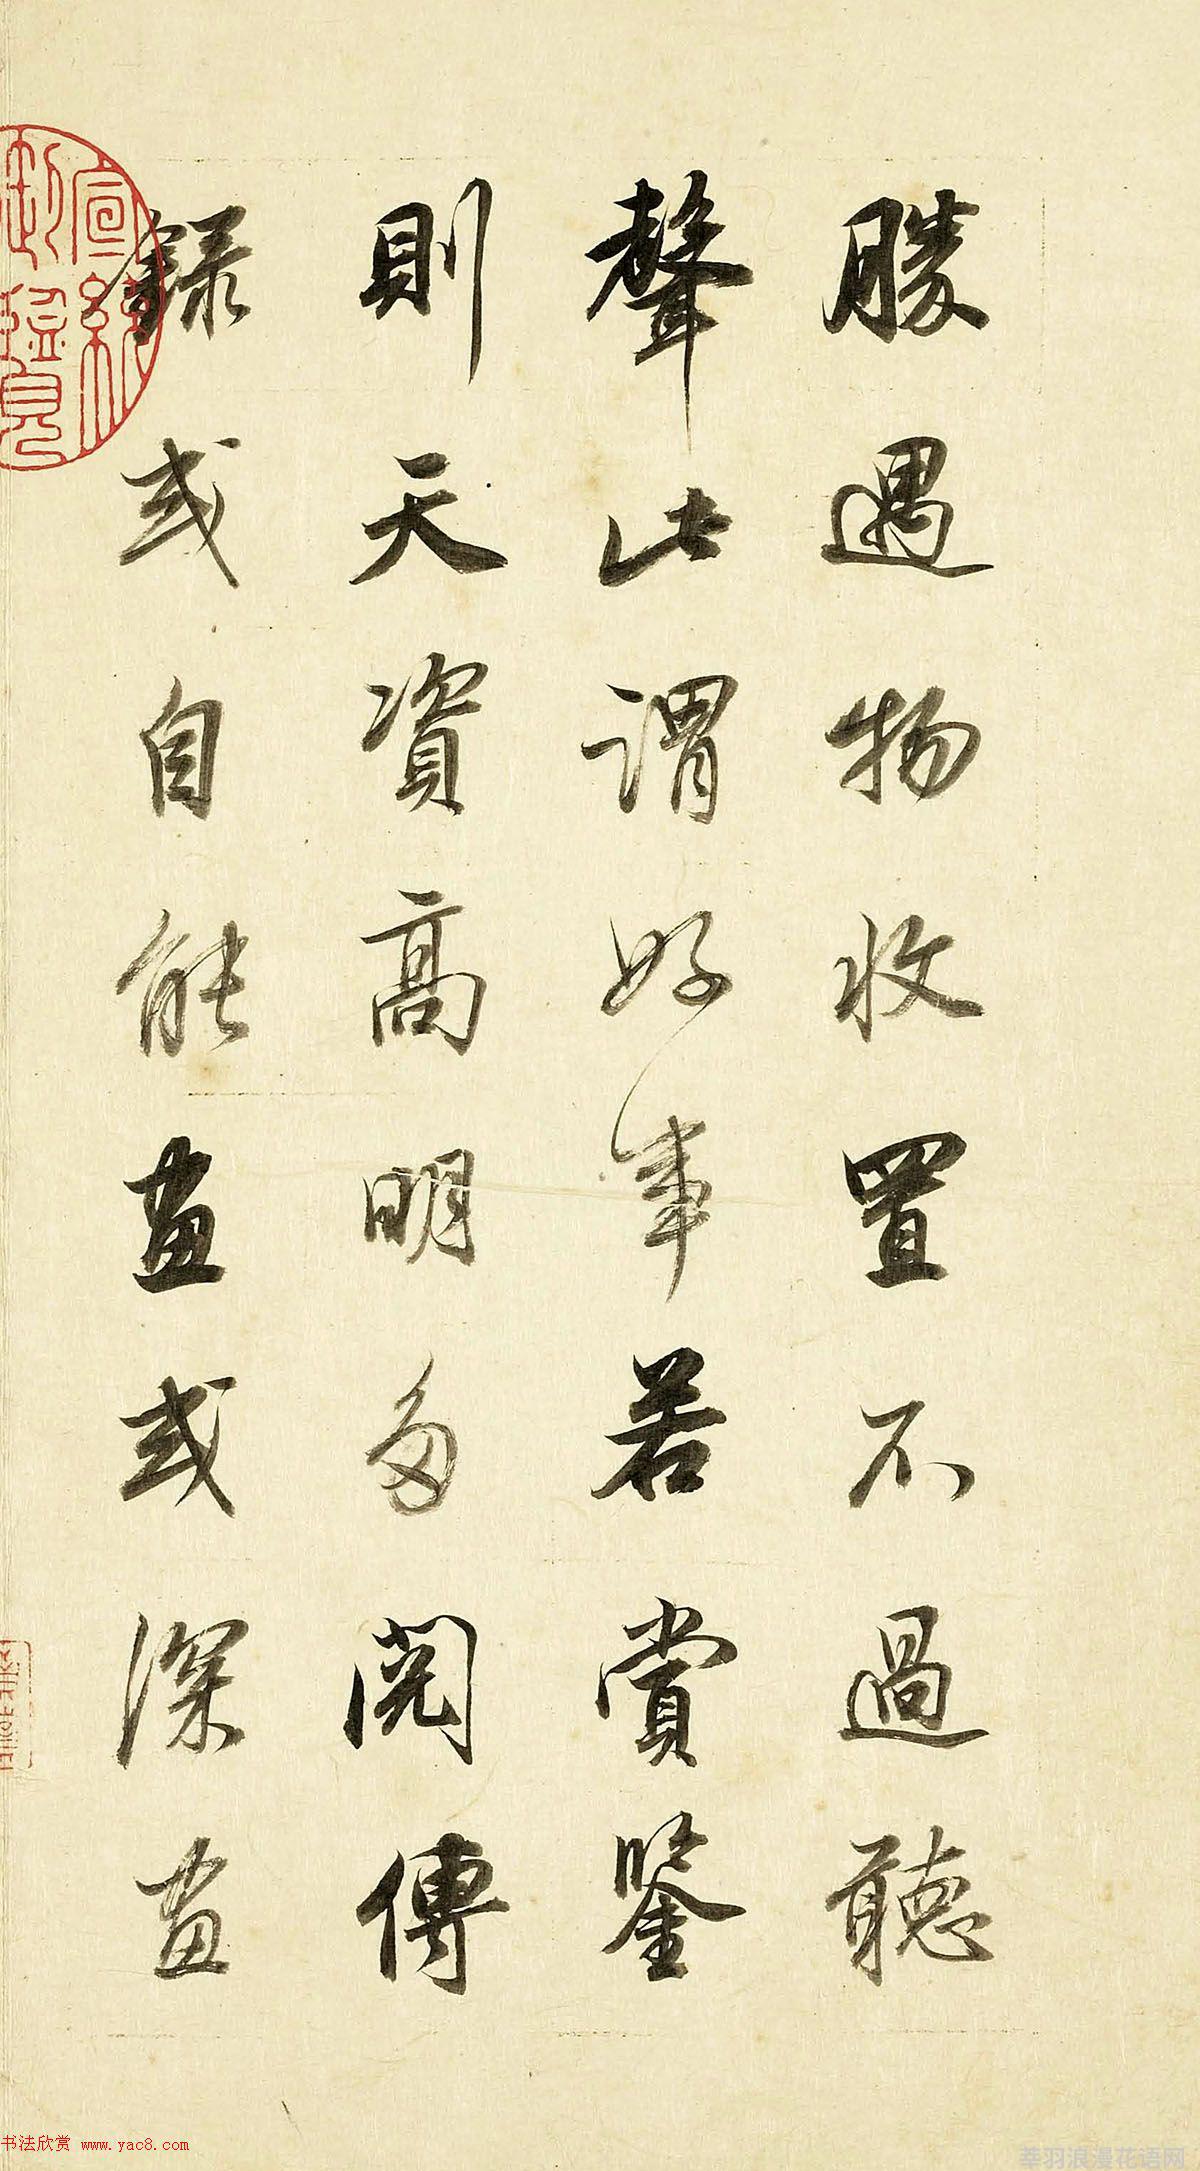 勝遇物收置不過聽
聲此謂好事若賞鑒
則天資高明多閱傳
錄或自能畫或深畫
宣統御覽
书法欣赏 www.yac8.com
莘羽浪漫花语网